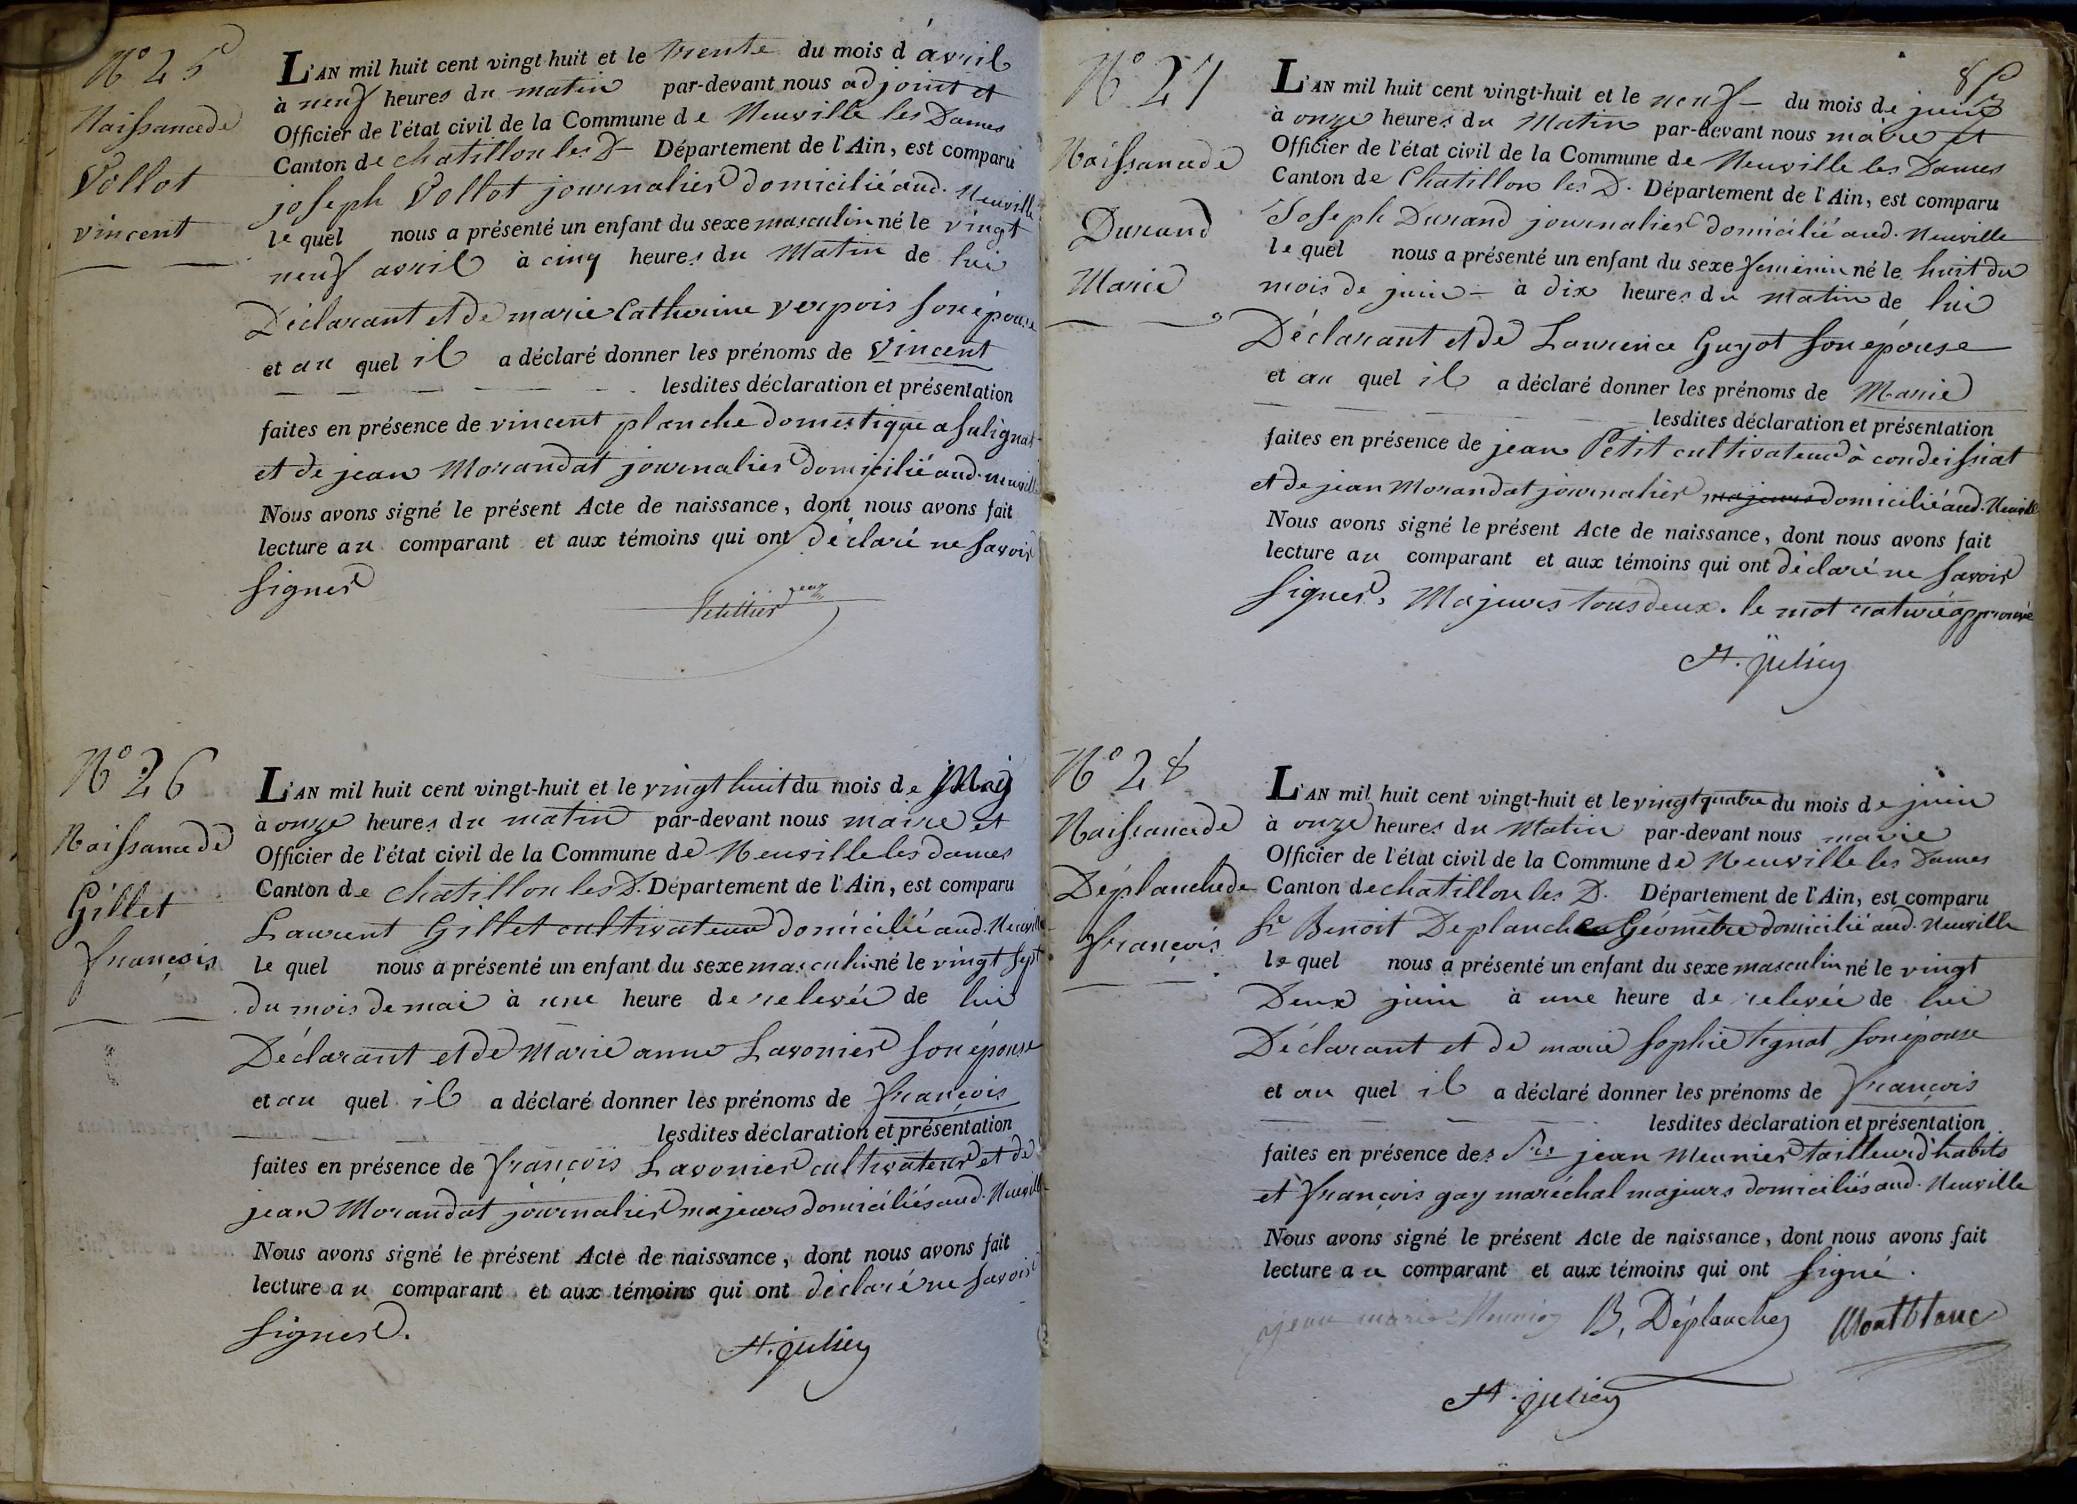 N° 25
Naissance de
Vollot
vincent
L'AN mil huit cent vingt huit et le trente du mois d'avril
à neuf heures du matin par-devant nous adjoint et
Officier de l'état civil de la Commune de Neuville les Dames
Canton de chatillon les D Département de l'Ain, est comparu
joseph Vollot journalier domicilié aud. Neuville
le quel nous a présenté un enfant du sexe masculin né le vingt
neuf avril à cinq heures du Matin de lui
Déclarant et de marie Catherine verpois son épouse
et au quel il a déclaré donner les prénoms de Vincent
lesdites déclaration et présentation
faites en présence de vincent planche domestique a Sulignat
et de jean Morandat journalier domicilié aud. neuville
Nous avons signé le présent Acte de naissance, dont nous avons fait
lecture au comparant et aux témoins qui ont déclaré ne savoir
signer
N° 26
Naissance de
Gillet
françois
L'AN mil huit cent vingt-huit et le vingt huit du mois de May
à onze heures du matin par-devant nous maire et
Officier de l'état civil de la Commune de Neuville les dames
Canton de chatillon les D. Département de l'Ain, est comparu
Laurent Gillet cultivateur domicilié aud. Neuville
le quel nous a présenté un enfant du sexe masculin né le vingt sept
du mois de mai à une heure de relevée de lui
Déclarant et de Marie anne Lavonier son épouse
et au quel il a déclaré donner les prénoms de françois
lesdites déclaration et présentation
faites en présence de françois Lavonier cultivateur et de
jean Morandat journalier majeurs domiciliés aud. Neuville
Nous avons signé le présent Acte de naissance, dont nous avons fait
lecture au comparant et aux témoins qui ont déclaré ne savoir
signer.
St. julien
N° 27
Naissance de
Durand
Marie
L'AN mil huit cent vingt-huit et le neuf du mois de juin
à onze heures du Matin par-devant nous maire et
Officier de l'état civil de la Commune de Neuville les Dames
Canton de Chatillon les D. Département de l'Ain, est comparu
Joseph Durand journalier domicilié aud. Neuville
le quel nous a présenté un enfant du sexe feminin né le huit du
mois de juin à dix heures du matin de lui
Déclarant et de Laurence Guyot son épouse
et au quel il a déclaré donner les prénoms de Marie
lesdites déclaration et présentation
faites en présence de jean Petit cultivateur à condeissiat
et de jean Morandat journalier majeurs domicilié aud. Neuville
Nous avons signé le présent Acte de naissance, dont nous avons fait
lecture au comparant et aux témoins qui ont déclaré ne savoir
signer. Majeurs tous deux. le mot raturé approuvé
St. julien
N° 28
Naissance de
Déplanche de
françois
L'AN mil huit cent vingt-huit et le vingt quatre du mois de juin
à onze heures du Matin par-devant nous maire
Officier de l'état civil de la Commune de Neuville les Dames
Canton de chatillon les D. Département de l'Ain, est comparu
Sr Benoit Deplanches Géomètre domicilié aud. Neuville
le quel nous a présenté un enfant du sexe masculin né le vingt
Deux juin à une heure de relevée de lui
Déclarant et de marie sophie tignat son épouse
et au quel il a déclaré donner les prénoms de françois
lesdites déclaration et présentation
faites en présence des Srs jean Meunier tailleur d'habits
et françois gay maréchal majeurs domiciliés aud. Neuville
Nous avons signé le présent Acte de naissance, dont nous avons fait
lecture au comparant et aux témoins qui ont signé.
jean marie Meunier B, Déplanches Montblanc
St. julien